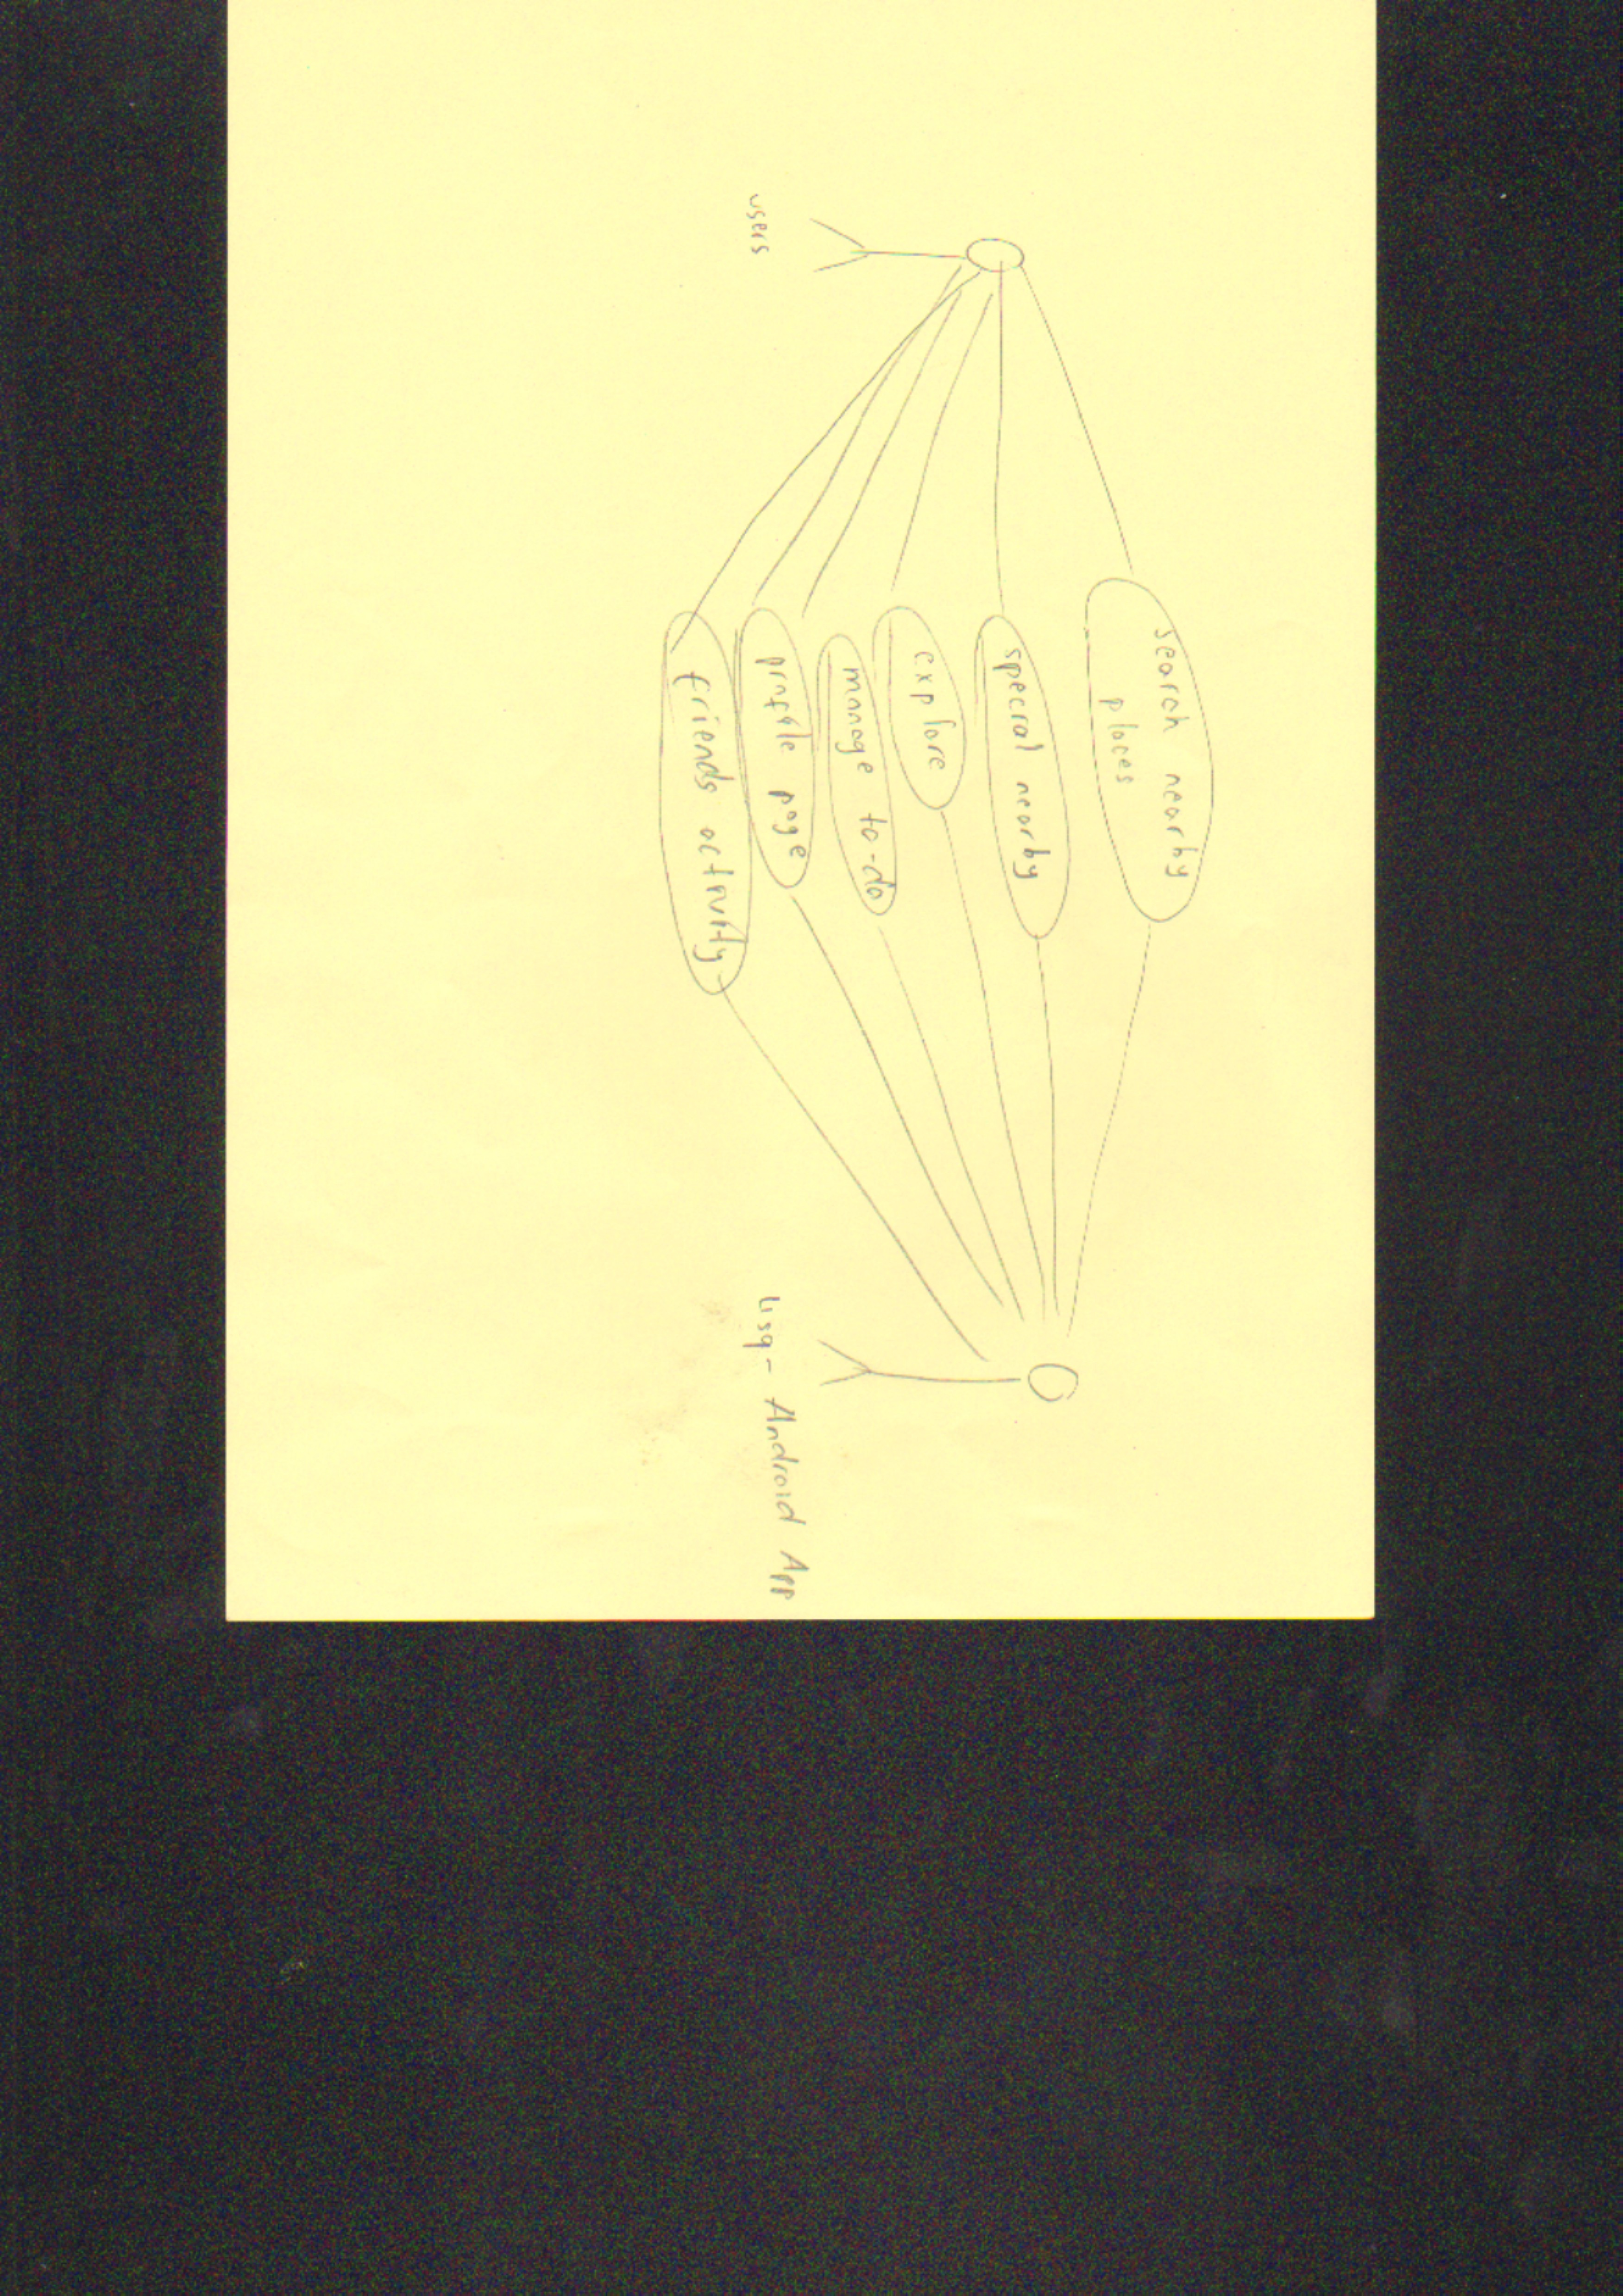 search nearby
places
special nearby
explore
manage to-do
profile page
friends activity
users
4sq- Android App